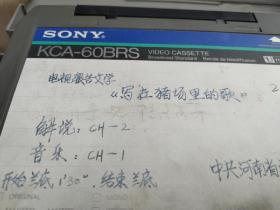 SONY
KCA-60BRS VIDEO CASSETTE
Broadcast Standard
电视报告文学
《写在猪场里的歌》 2
解说：CH-2
音乐：CH-1
开始兰底1'30"，结束兰底
中共河南省
ORIGINAL
MONO